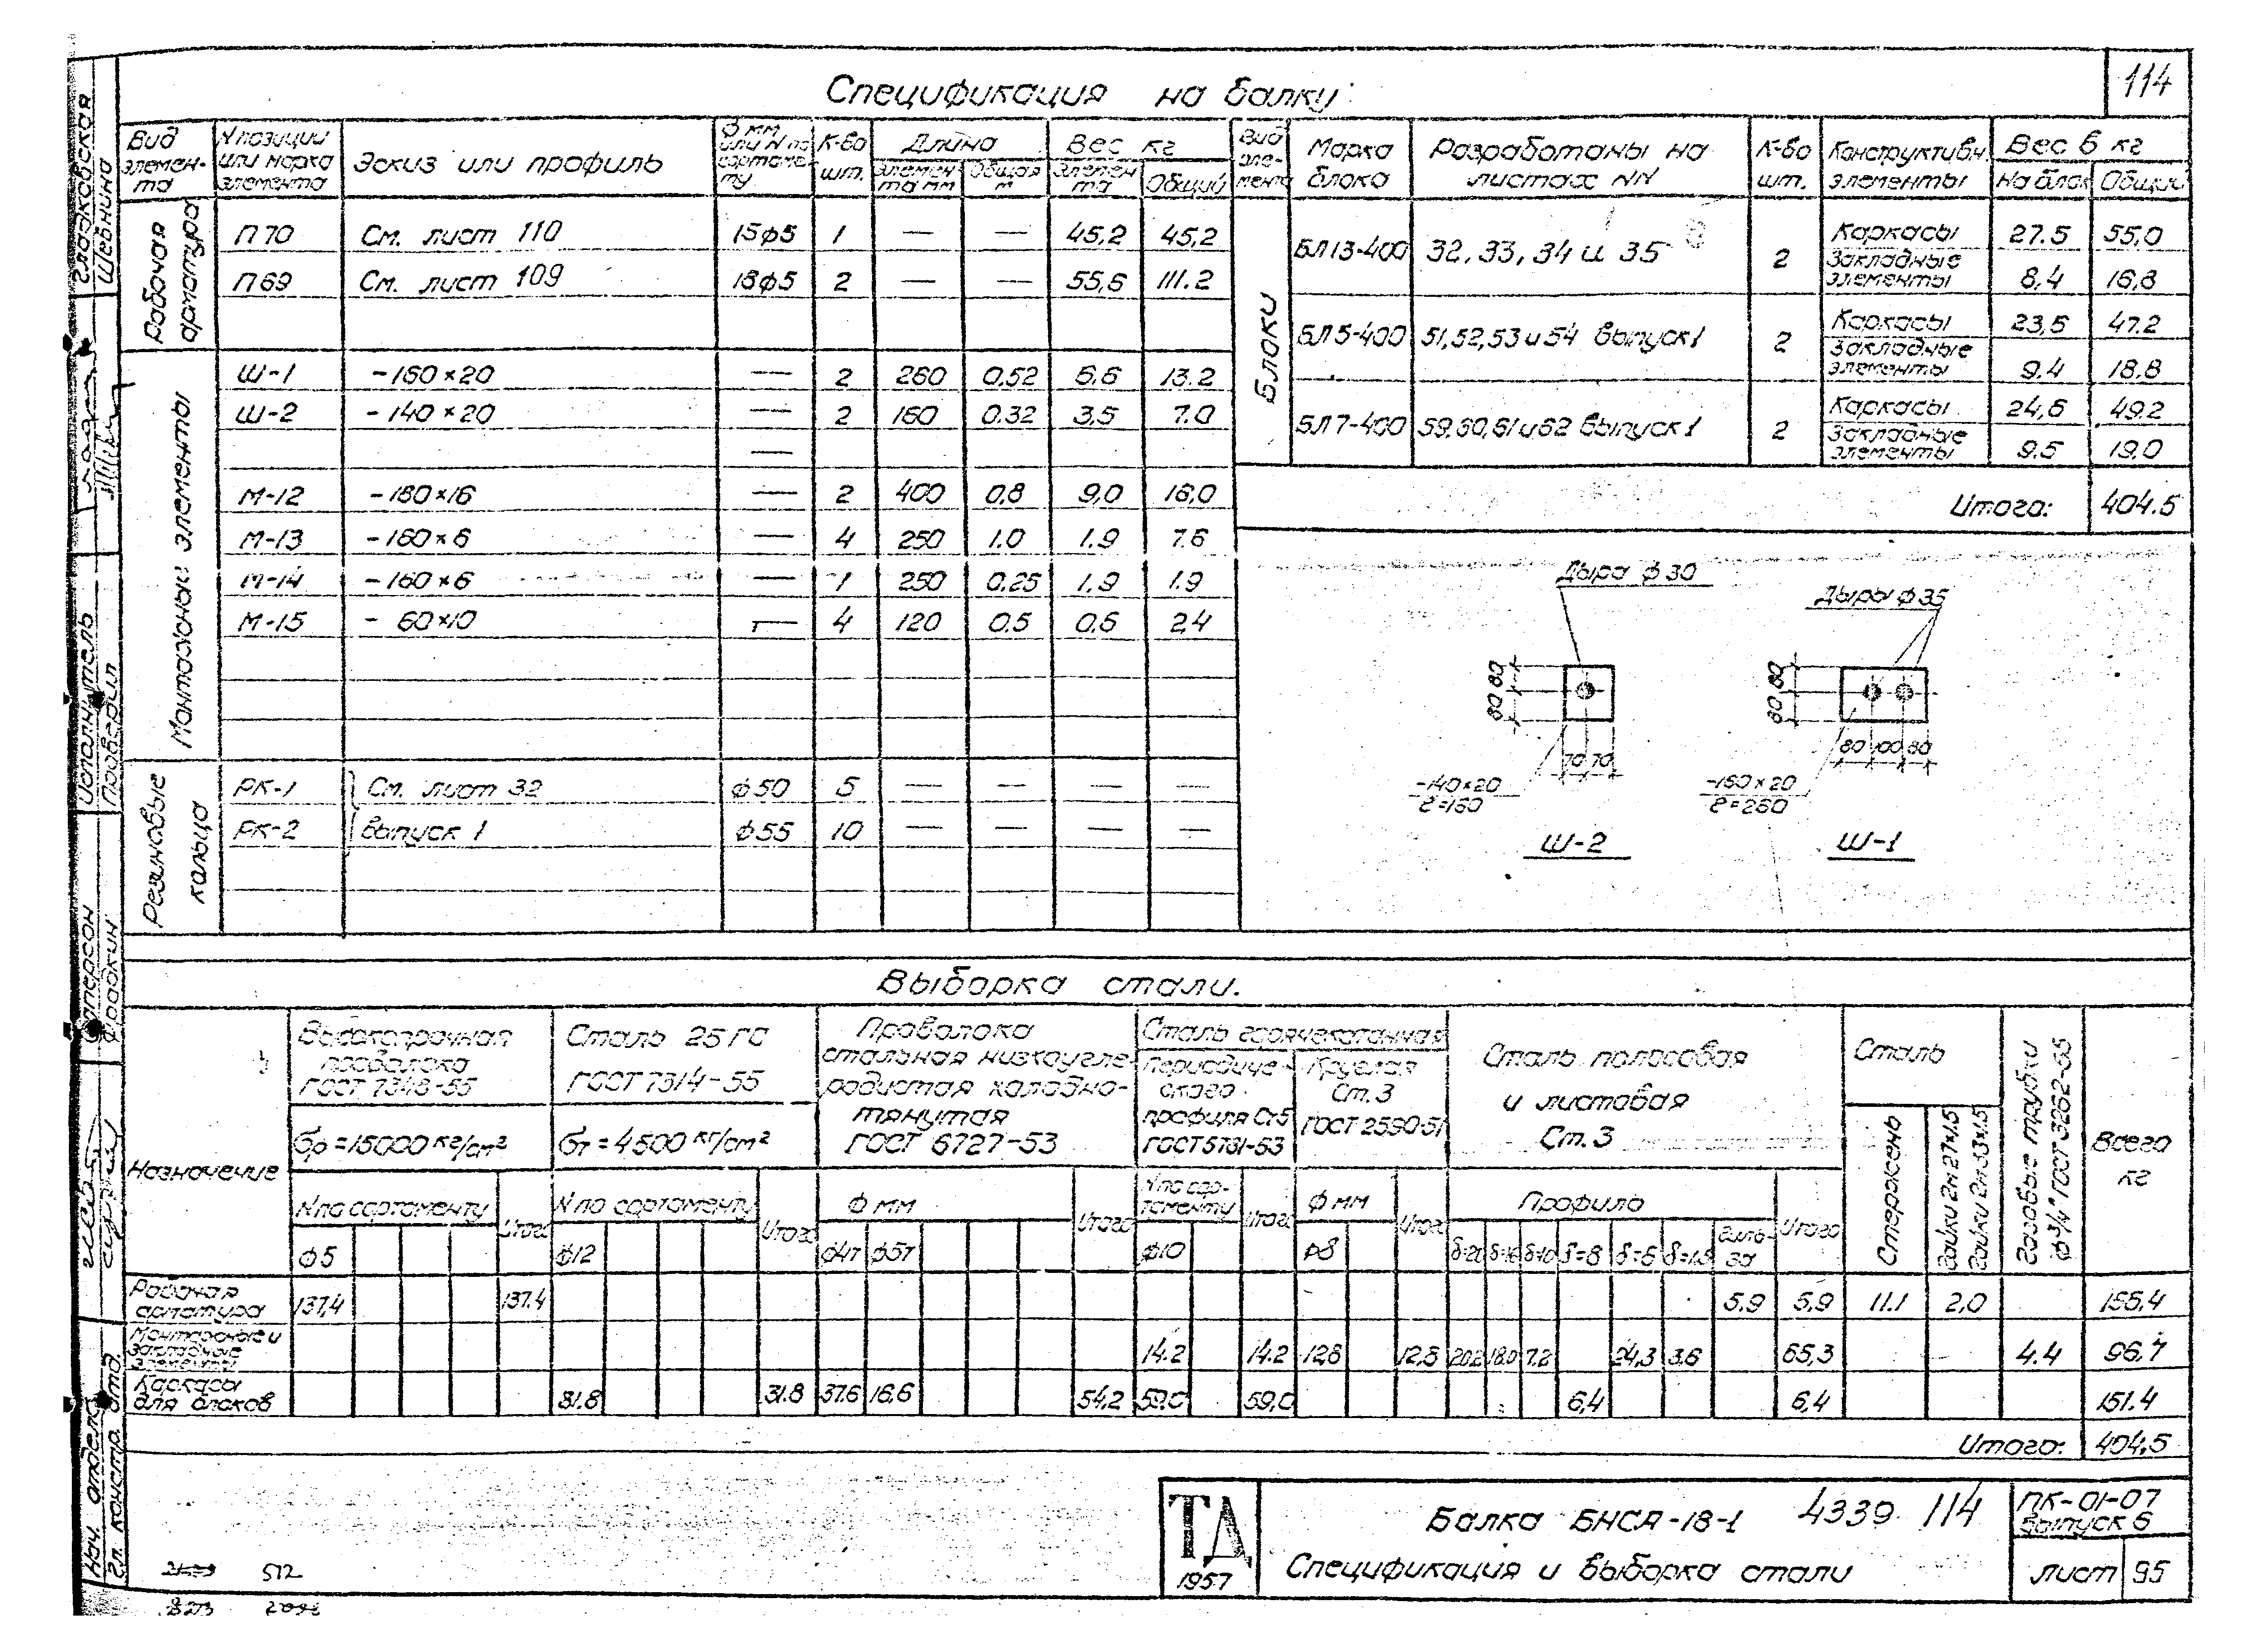 114
Спецификация на балку
Вид элемен-та | N позиции или марка элемента | Эскиз или профиль | ф мм или N по сортаменту | К-во шт. | Длина | Вес кг
Элемента мм | Общая м | Элемента | Общий
Рабочая арматура
П70 | См. лист 110 | 15ф5 | 1 | — | — | 45,2 | 45,2
П69 | См. лист 109 | 18ф5 | 2 | — | — | 55,6 | 111.2
Монтажные элементы
Ш-1 | -160×20 | — | 2 | 260 | 0,52 | 6,6 | 13.2
Ш-2 | -140×20 | — | 2 | 160 | 0.32 | 3,5 | 7.0
—
М-12 | -180×16 | — | 2 | 400 | 0,8 | 9,0 | 18,0
М-13 | -160×6 | — | 4 | 250 | 1.0 | 1.9 | 7.6
М-14 | -160×6 | — | 1 | 250 | 0.25 | 1.9 | 1.9
М-15 | - 60×10 | — | 4 | 120 | 0.5 | 0.6 | 2,4
Резиновые кольца
РК-1 | См. лист 32 | ф50 | 5 | — | — | — | —
РК-2 | выпуск 1 | ф55 | 10 | — | — | — | —
Вид элемента | Марка блока | Разработаны на листах NN | К-во шт. | Конструктивн. элементы | Вес в кг
На блок | Общий
Блоки
БЛ13-400 | 32, 33, 34 и 35 | 2 | Каркасы | 27.5 | 55,0
Закладные элементы | 8,4 | 16,8
БЛ5-400 | 51,52,53 и 54 выпуск 1 | 2 | Каркасы | 23,6 | 47.2
Закладные элементы | 9.4 | 18.8
БЛ7-400 | 59,60,61 и 62 выпуск 1 | 2 | Каркасы | 24,6 | 49.2
Закладные элементы | 9.5 | 19.0
Итого: 404.5
Дыра ф30
Дыры ф35
80 80
80 80
70 70
80 100 80
-140×20
ℓ=160
-160×20
ℓ=260
Ш-2
Ш-1
Выборка стали.
Назначение
Высокопрочная проволока ГОСТ 7348-55
Сталь 25ГС ГОСТ 7314-55
Проволока стальная низкоуглеродистая холодно-тянутая ГОСТ 6727-53
Сталь горячекатанная
Периодического профиля Ст5 ГОСТ 5781-53
Круглая Ст.3 ГОСТ 2590-51
Сталь полосовая и листовая Ст.3
Сталь
Газовые трубки ф3/4" ГОСТ 3262-55
Всего кг
σр=15000 кг/см²
σт=4500 кг/см²
N по сортаменту | Итого | N по сортаменту | Итого | ф мм | Итого | N по сортаменту | Итого | ф мм | Итого | Профиль | Итого
Стержень | Гайки 2М27×1.5 | Гайки 2М33×1.5
ф5 | ф12 | ф4т | ф5т | ф10 | ф8 | δ=20 | δ=16 | δ=10 | δ=8 | δ=6 | δ=1,5 | Гильза
Рабочая арматура | 137,4 | 137.4 | 5,9 | 5,9 | 11.1 | 2,0 | 156.4
Монтажные и закладные элементы | 14.2 | 14.2 | 12,8 | 12,8 | 20.2 | 18.0 | 7.2 | 24,3 | 3,6 | 65,3 | 4.4 | 96,7
Каркасы для блоков | 31.8 | 31.8 | 37.6 | 16,6 | 54,2 | 59,0 | 59,0 | 6,4 | 6,4 | 151.4
Итого: 404,5
ТД
1957
Балка БНСА-18-1 4339 114
Спецификация и выборка стали
ПК-01-07
выпуск 6
лист 95
Нач. отдела
Гл. констр. отд.
Исполнитель
Проверил
Фрадкин
Глазковская
Шевнина
512